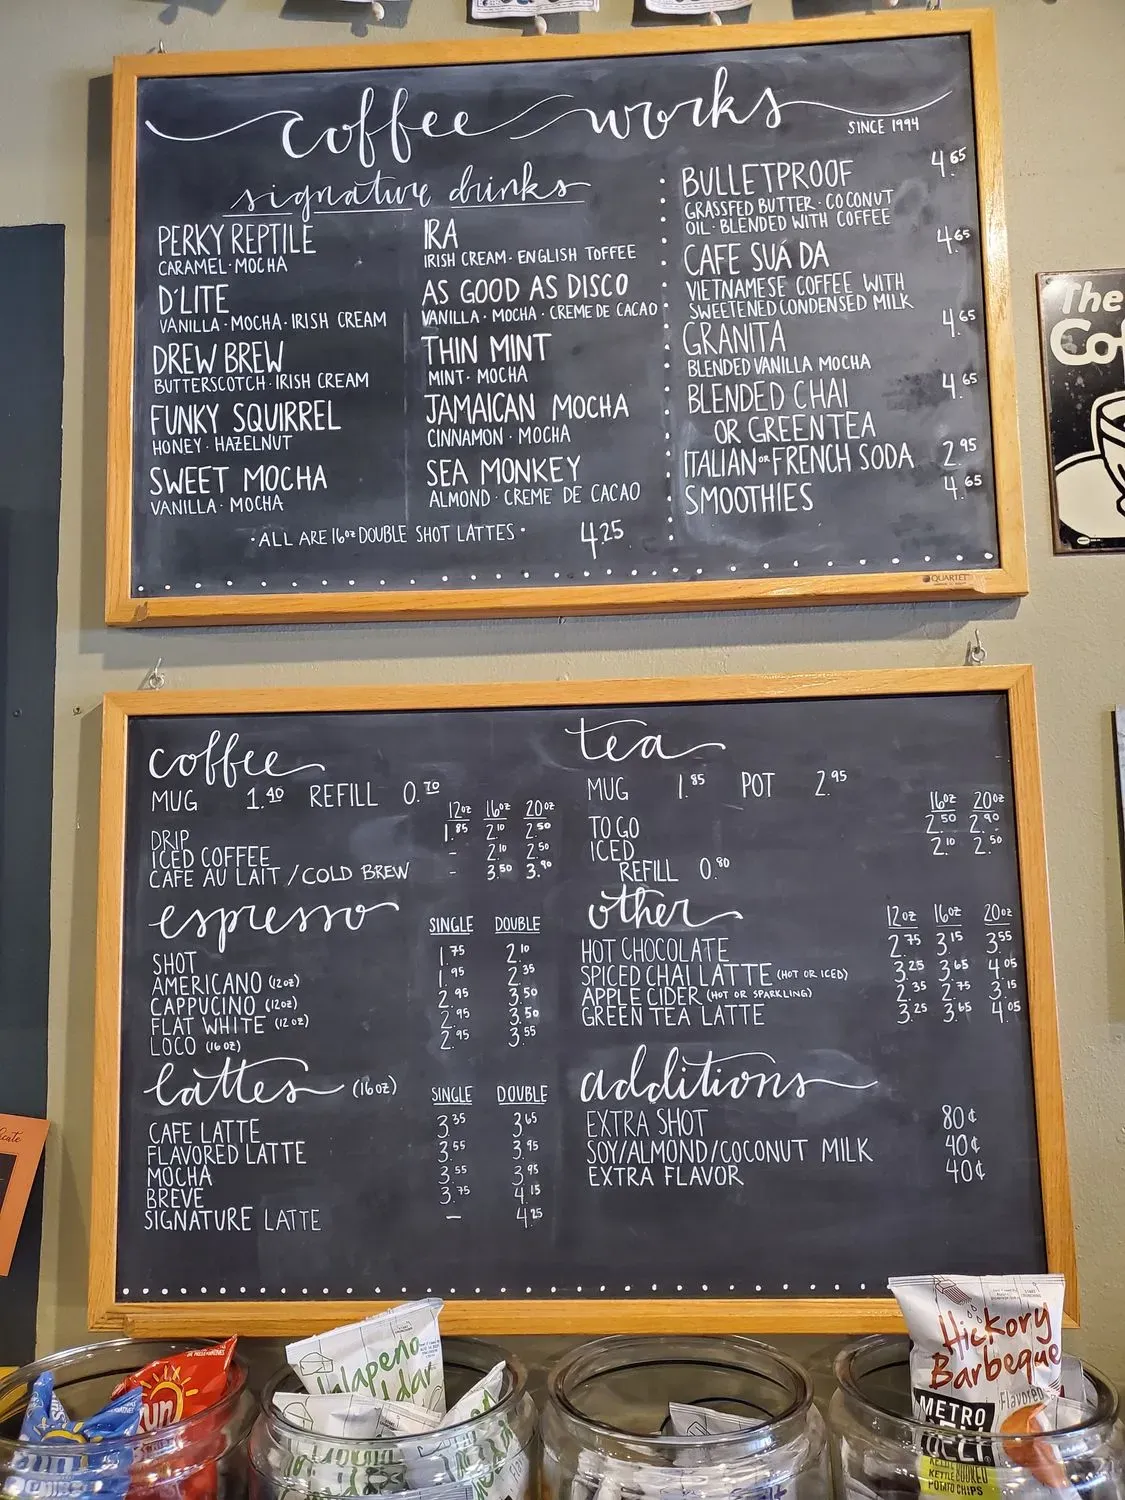 coffee works
SINCE 1994
signature drinks
PERKY REPTILE
CARAMEL · MOCHA
D'LITE
VANILLA · MOCHA · IRISH CREAM
DREW BREW
BUTTERSCOTCH · IRISH CREAM
FUNKY SQUIRREL
HONEY · HAZELNUT
SWEET MOCHA
VANILLA · MOCHA
IRA
IRISH CREAM · ENGLISH TOFFEE
AS GOOD AS DISCO
VANILLA · MOCHA · CREME DE CACAO
THIN MINT
MINT · MOCHA
JAMAICAN MOCHA
CINNAMON · MOCHA
SEA MONKEY
ALMOND · CREME DE CACAO
· ALL ARE 16oz DOUBLE SHOT LATTES · 4.25
BULLETPROOF 4.65
GRASSFED BUTTER · COCONUT
OIL · BLENDED WITH COFFEE
CAFE SUÁ DA 4.65
VIETNAMESE COFFEE WITH
SWEETENED CONDENSED MILK
GRANITA 4.65
BLENDED VANILLA MOCHA
BLENDED CHAI 4.65
OR GREEN TEA
ITALIAN OR FRENCH SODA 2.95
SMOOTHIES 4.65
QUARTET
The
Cof
coffee
MUG 1.40 REFILL 0.70
12oz 16oz 20oz
DRIP 1.85 2.10 2.50
ICED COFFEE - 2.10 2.50
CAFE AU LAIT / COLD BREW - 3.50 3.90
espresso
SINGLE DOUBLE
SHOT 1.75 2.10
AMERICANO (12oz) 1.95 2.35
CAPPUCINO (12oz) 2.95 3.50
FLAT WHITE (12oz) 2.95 3.50
LOCO (16oz) 2.95 3.55
lattes (16oz)
SINGLE DOUBLE
CAFE LATTE 3.35 3.65
FLAVORED LATTE 3.55 3.95
MOCHA 3.55 3.95
BREVE 3.75 4.15
SIGNATURE LATTE - 4.25
tea
MUG 1.85 POT 2.95
16oz 20oz
TO GO 2.50 2.90
ICED 2.10 2.50
REFILL 0.80
other
12oz 16oz 20oz
HOT CHOCOLATE 2.75 3.15 3.55
SPICED CHAI LATTE (HOT OR ICED) 3.25 3.65 4.05
APPLE CIDER (HOT OR SPARKLING) 2.35 2.75 3.15
GREEN TEA LATTE 3.25 3.65 4.05
additions
EXTRA SHOT 80¢
SOY/ALMOND/COCONUT MILK 40¢
EXTRA FLAVOR 40¢
Jalapeño
Hickory
Barbeque
Flavored
METRO
DELI
KETTLE COOKED
POTATO CHIPS